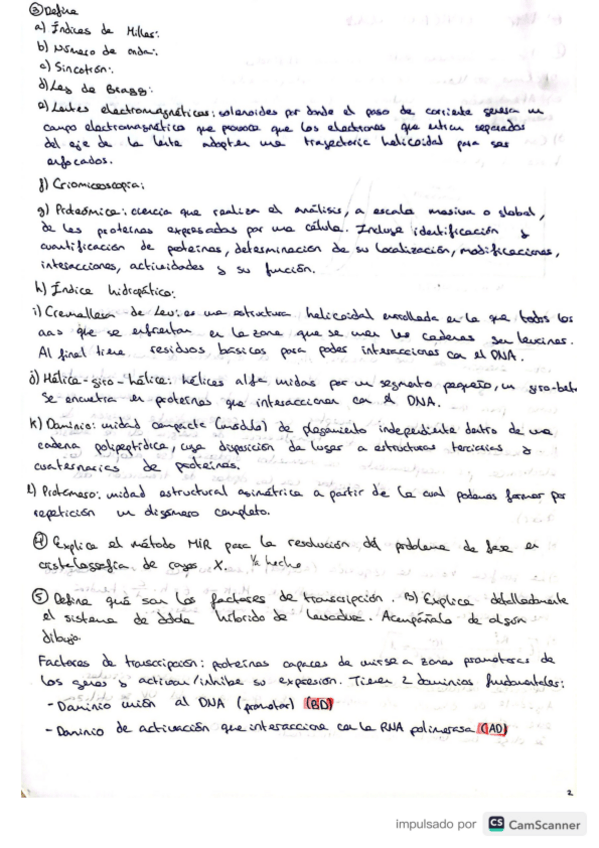 ③ Define
a) Índices de Miller:
b) Número de onda:
c) Sincotrón:
d) Ley de Bragg:
e) Lentes electromagnéticas: solenoides por donde el paso de corriente genera un
campo electromagnético que provoca que los electrones que entran separados
del eje de la lente adopten una trayectoria helicoidal para ser
enfocados.
f) Criomicroscopia:
g) Proteómica: ciencia que realiza el análisis, a escala masiva o global,
de las proteínas expresadas por una célula. Incluye identificación y
cuantificación de proteínas, determinación de su localización, modificaciones,
interacciones, actividades y su función.
h) Índice hidropático:
i) Cremallera de Leu: es una estructura helicoidal enrollada en la que todos los
aas que se enfrentan en la zona que se unen las cadenas son leucinas.
Al final tiene residuos básicos para poder interaccionar con el DNA.
j) Hélice-giro-hélice: hélices alfa unidas por un segmento pequeño, un giro-beta
Se encuentra en proteínas que interaccionan con el DNA.
k) Dominio: unidad compacta (módulo) de plegamiento independiente dentro de una
cadena polipeptídica, cuya disposición da lugar a estructuras terciarias y
cuaternarias de proteínas.
l) Protómero: unidad estructural asimétrica a partir de la cual podemos formar por
repetición un oligómero completo.
④ Explica el método MIR para la resolución del problema de fase en
cristalografía de rayos X. Ya hecho
⑤ Define qué son los factores de transcripción. B) Explica detalladamente
el sistema de doble híbrido de levadura. Acompáñalo de algún
dibujo.
Factores de transcripción: proteínas capaces de unirse a zonas promotoras de
los genes y activan/inhibe su expresión. Tienen 2 dominios fundamentales:
- Dominio unión al DNA (promotor) (BD)
- Dominio de activación que interacciona con la RNA polimerasa (AD)
2
impulsado por CS CamScanner